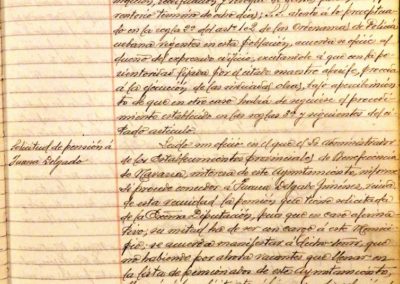 torio termino de ocho dias; S.S. atento á lo preceptua-
do en la regla 2ª del artº 102 de las Ordenanzas de Policía
urbana vigentes en esta población, acuerda se oficie al
dueño del expresado edificio, excitandole á que con la pe-
rentoriedad fijada por el citado maestro alarife, proceda
á la ejecución de las indicadas obras, bajo apercibimien-
to de que en otro caso habrá de seguirse el procedi-
miento establecido en las reglas 3ª y siguientes del ci-
tado artículo.
Solicitud de pensión á
Juana Delgado
Leido un oficio en el que el Sr. Administrador
de los Establecimientos provinciales de Beneficencia
de Navarra, interesa de este Ayuntamiento, informe
si procede conceder á Juana Delgado Jimenez, vecina
de esta vecindad la pensión que tiene solicitada
de la Excma. Diputación, pues que en caso afirma-
tivo, su mitad ha de ser en cargo á este Munici-
pio, se acuerda manifestar á dicho señor, que
no habiendo por ahora vacantes que llenar en
la lista de pensionados de este Ayuntamiento,